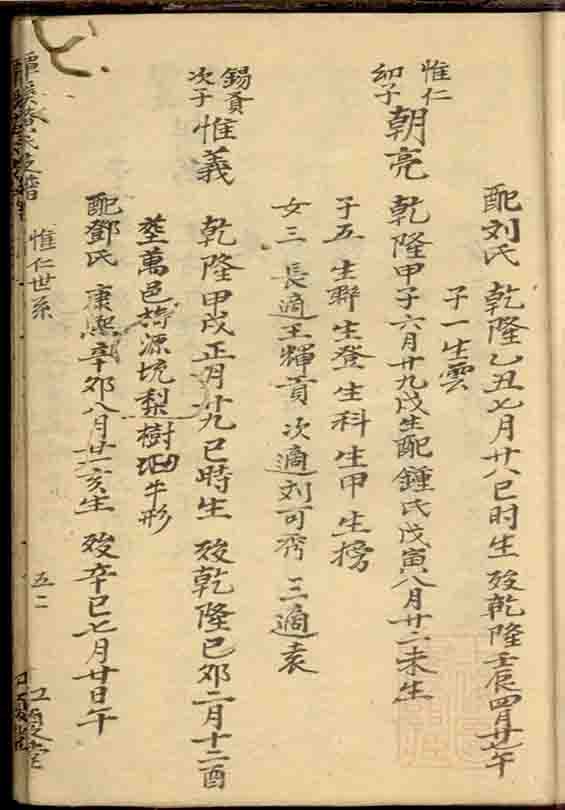 配刘氏 乾隆乙丑七月廿八巳时生 殁乾隆壬辰四月廿七午
子一生雲
惟仁
幼子
朝亮 乾隆甲子六月廿九戌生配鍾氏戊寅八月廿二未生
子五 生聯生登生科生甲生榜
女三 長適王輝貢 次適刘可秀 三適袁
錫貢
次子
惟義 乾隆甲戌正月廿九巳時生 殁乾隆己卯二月十二酉
塟萬邑 源坑梨樹 牛形
配鄧氏 康熙辛卯八月廿二亥生 殁辛巳七月廿日午
惟仁世系
五二